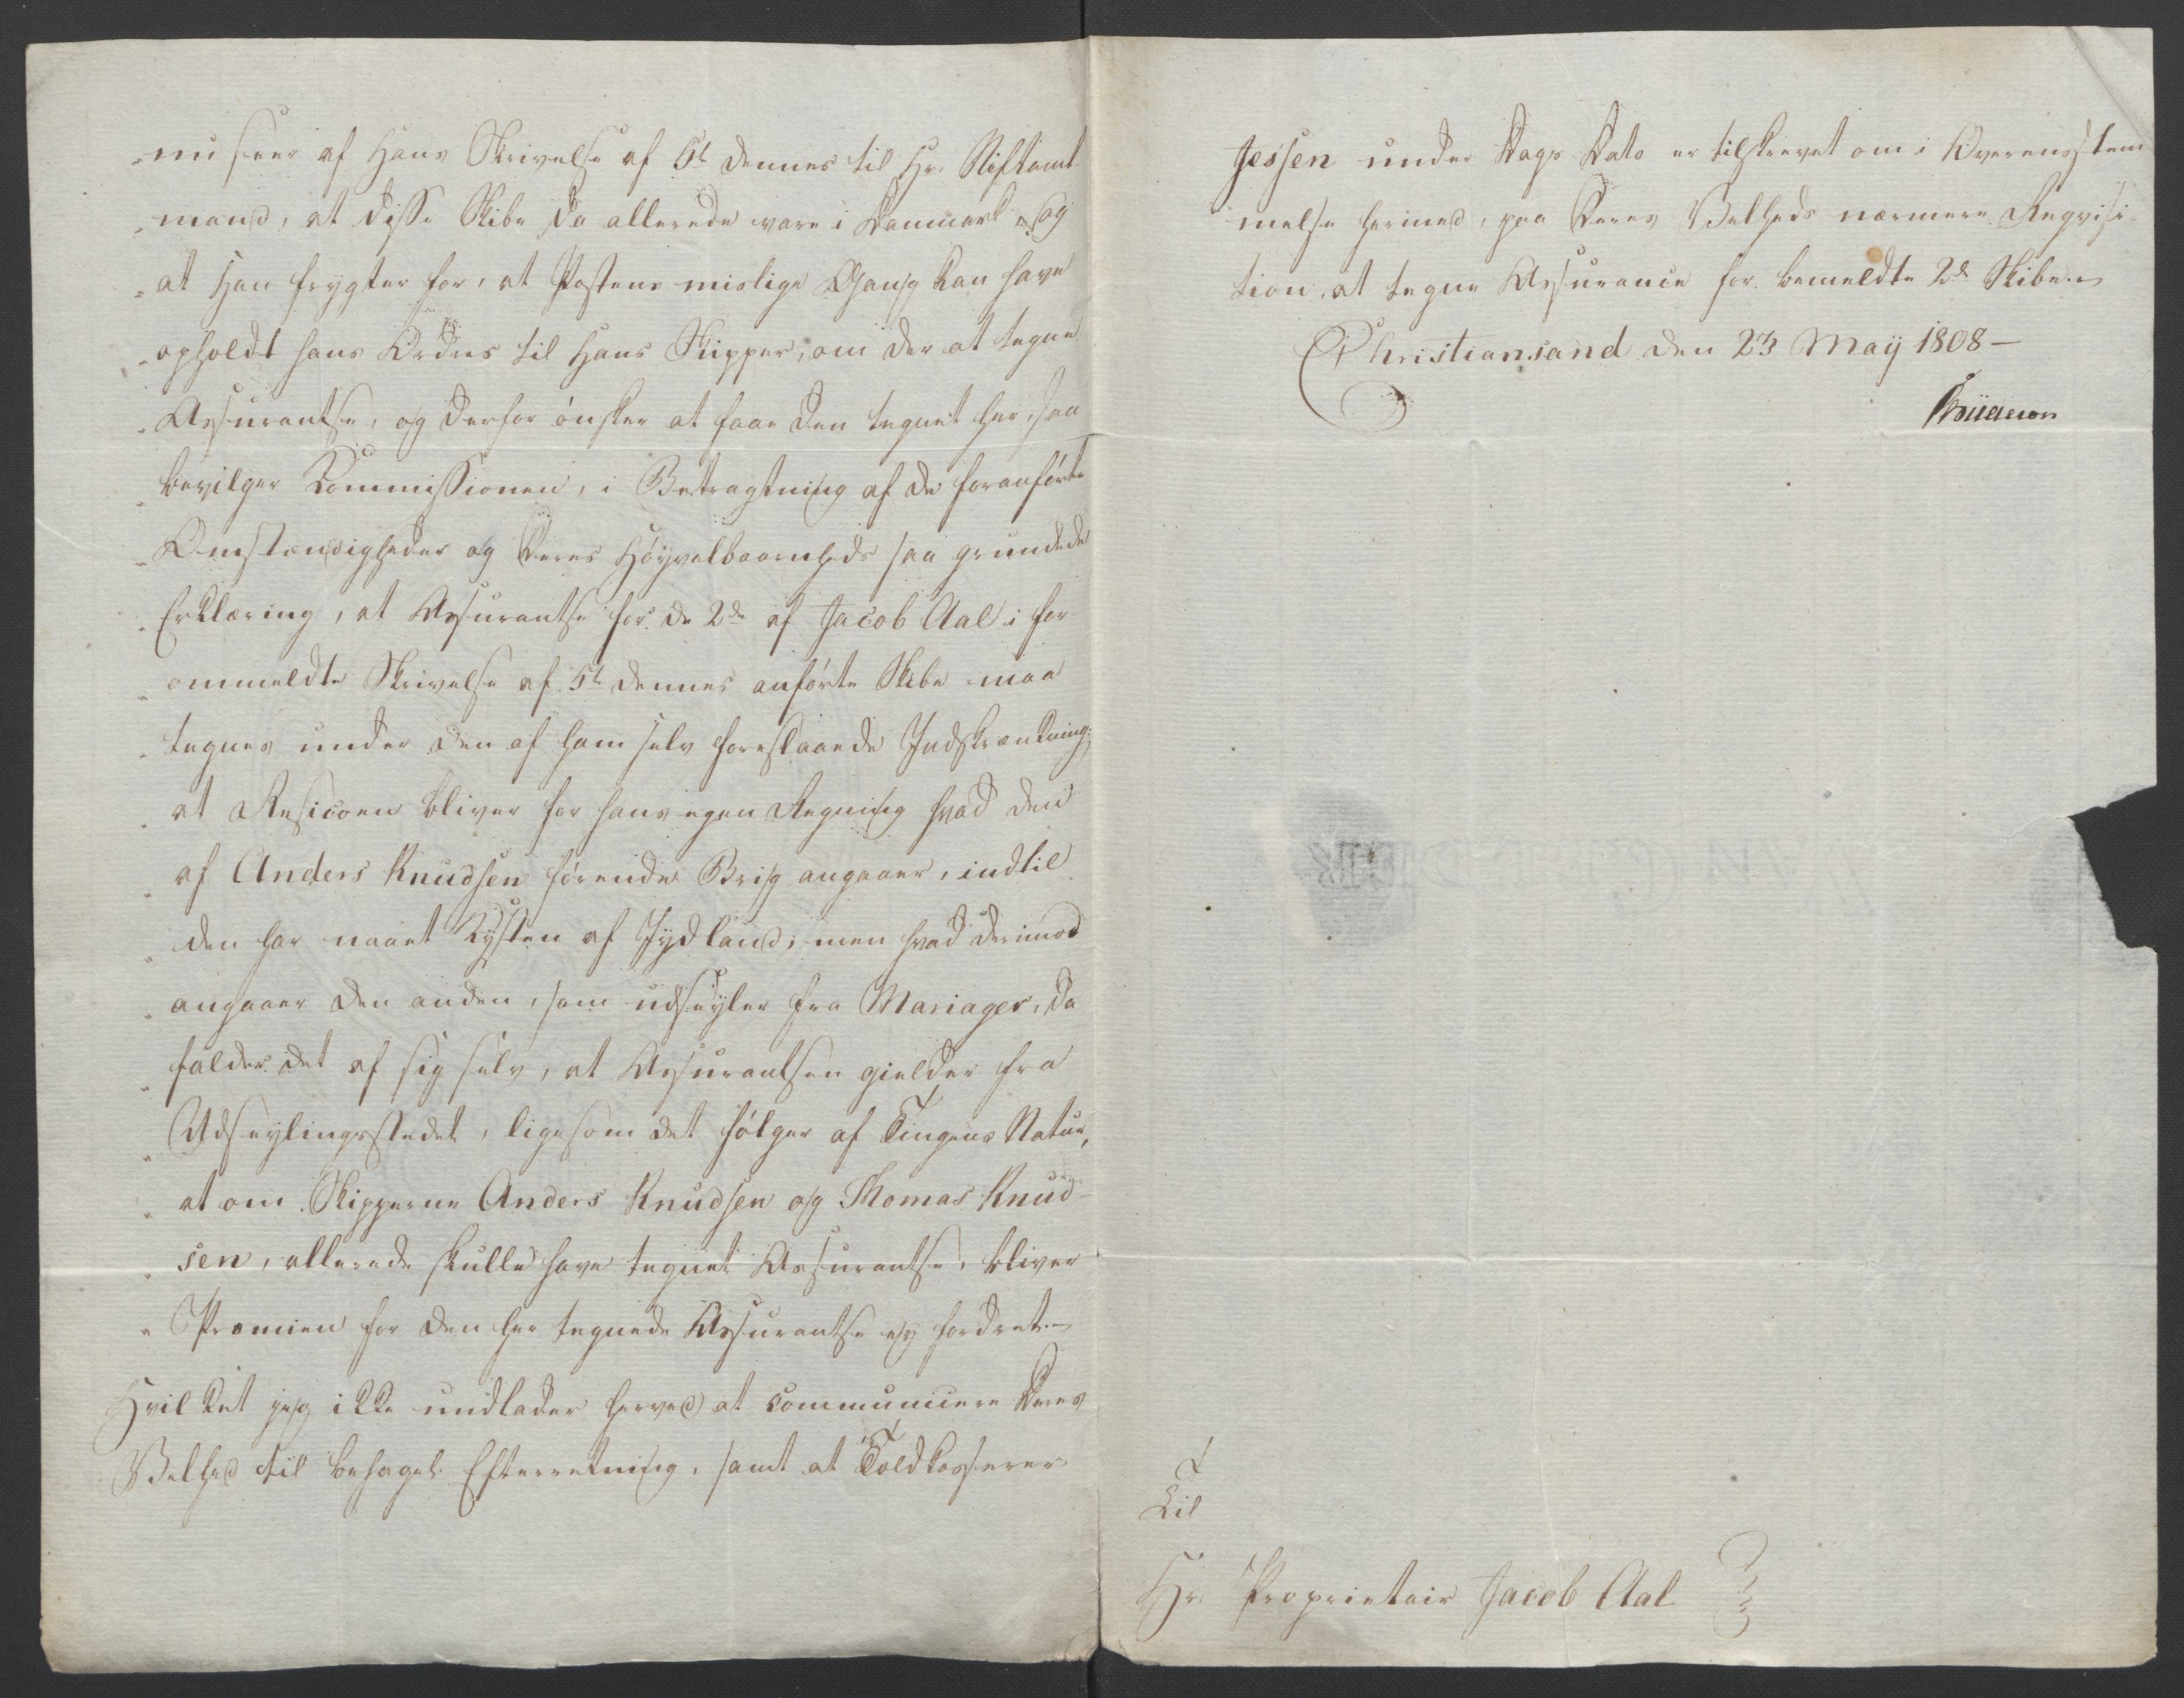 „nu seer af Hans Skrivelse af 5t dennes til Hr. Stiftamt
„mand, at disse Skibe da allerede vare i Danmark og
„at Han frygter for, at Postens mislige Gang kan have
„opholdt hans Ordres til Hans Skipper, om der at tegne
„Assurantse, og derfor ønsker at faae den tegnet her, saa
„bevilger Commissionen, i Betragtning af de foranførte
„Omstændigheder og Deres Høyvelbaarnheds saa grundede
„Erklæring, at Assurantse for de 2de af Jacob Aal i for-
„ommeldte Skrivelse af 5t dennes anførte Skibe maa
„tegnes under den af ham selv foreslaaede Indskrænkning:
„at Resicoen bliver for hans egen Regning hvad den
„af Anders Knudsen førende Brig angaaer, indtil
„den har naaet Kysten af Jydland; men hvad derimod
„angaaer den anden, som udseyler fra Mariager, da
„falder det af sig selv, at Assurantsen gielder fra
„Udseylingsstedet, ligesom det følger af Tingens Natur,
„at om Skipperne Anders Knudsen og Thomas Knud-
„sen, allerede skulle have tegnet Assurantse, bliver
„Præmien for den her tegnede Assurantse ey fordret.-
Hvilket jeg ikke undlader herved at communicere Deres
Velhed til behagel. Efterretning, samt at Toldkasserer
Jessen under Dags Dato er tilskrevet om i Overensstem
melse hermed, paa Deres Velheds nærmere Reqvisi-
tion, at tegne Assurance for bemeldte 2de Skibe.-
Christiansand den 23 Maÿ 1808-
Til
Hr. Proprietair Jacob Aal